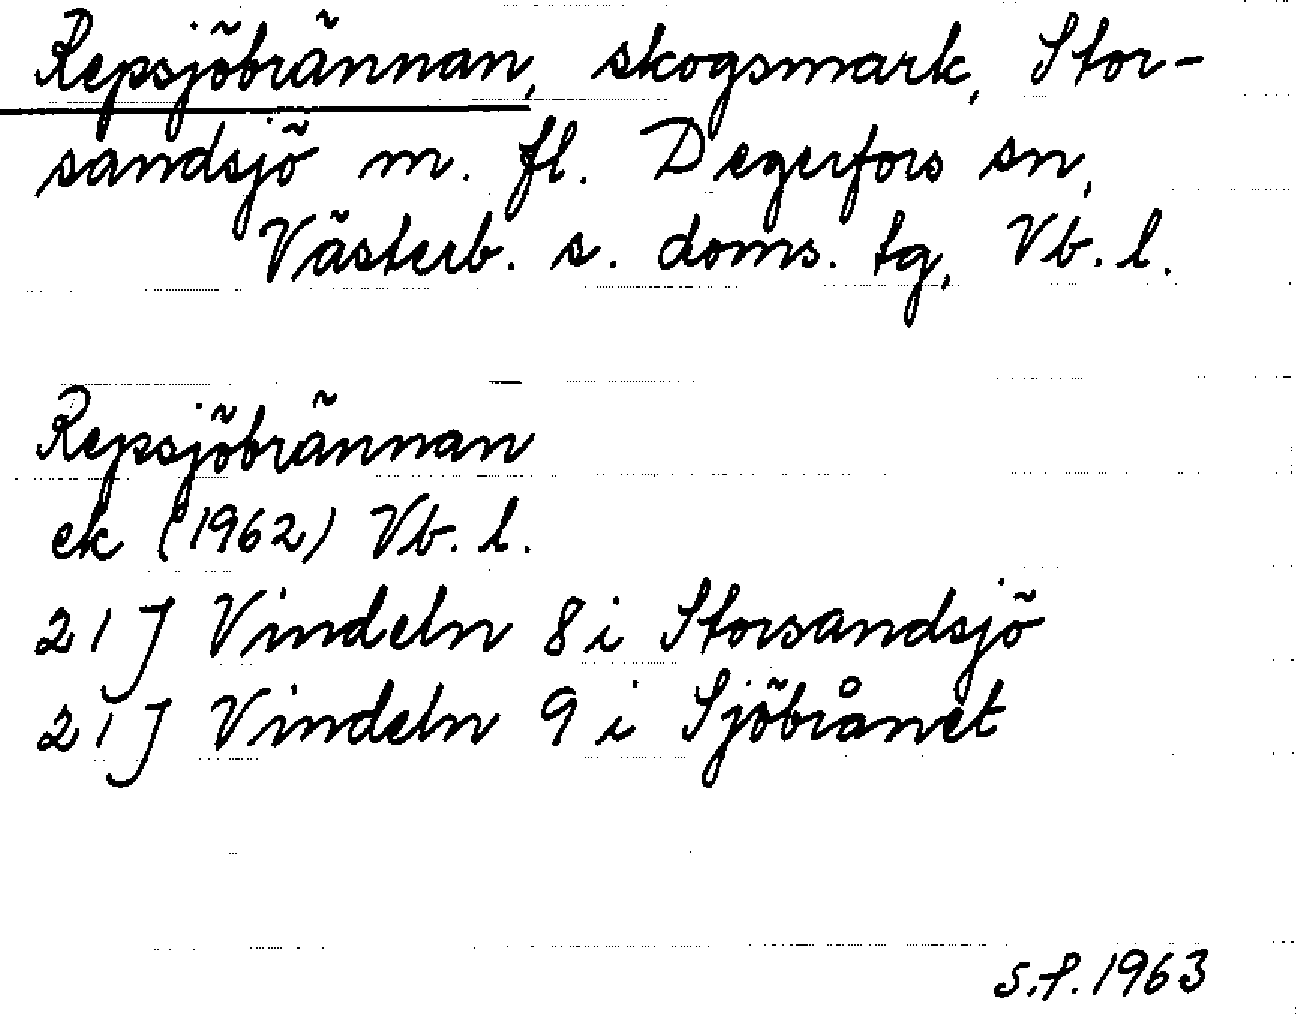 Repsjöbrännan, skogsmark, Stor-
sandsjö m. fl. Degerfors sn,
Västerb. s. doms. tg, Vb. l.
Repsjöbrännan
ek (1962) Vb. l.
21 J Vindeln 8 i Storsandsjö
21 J Vindeln 9 i Sjöbrånet
S.P. 1963